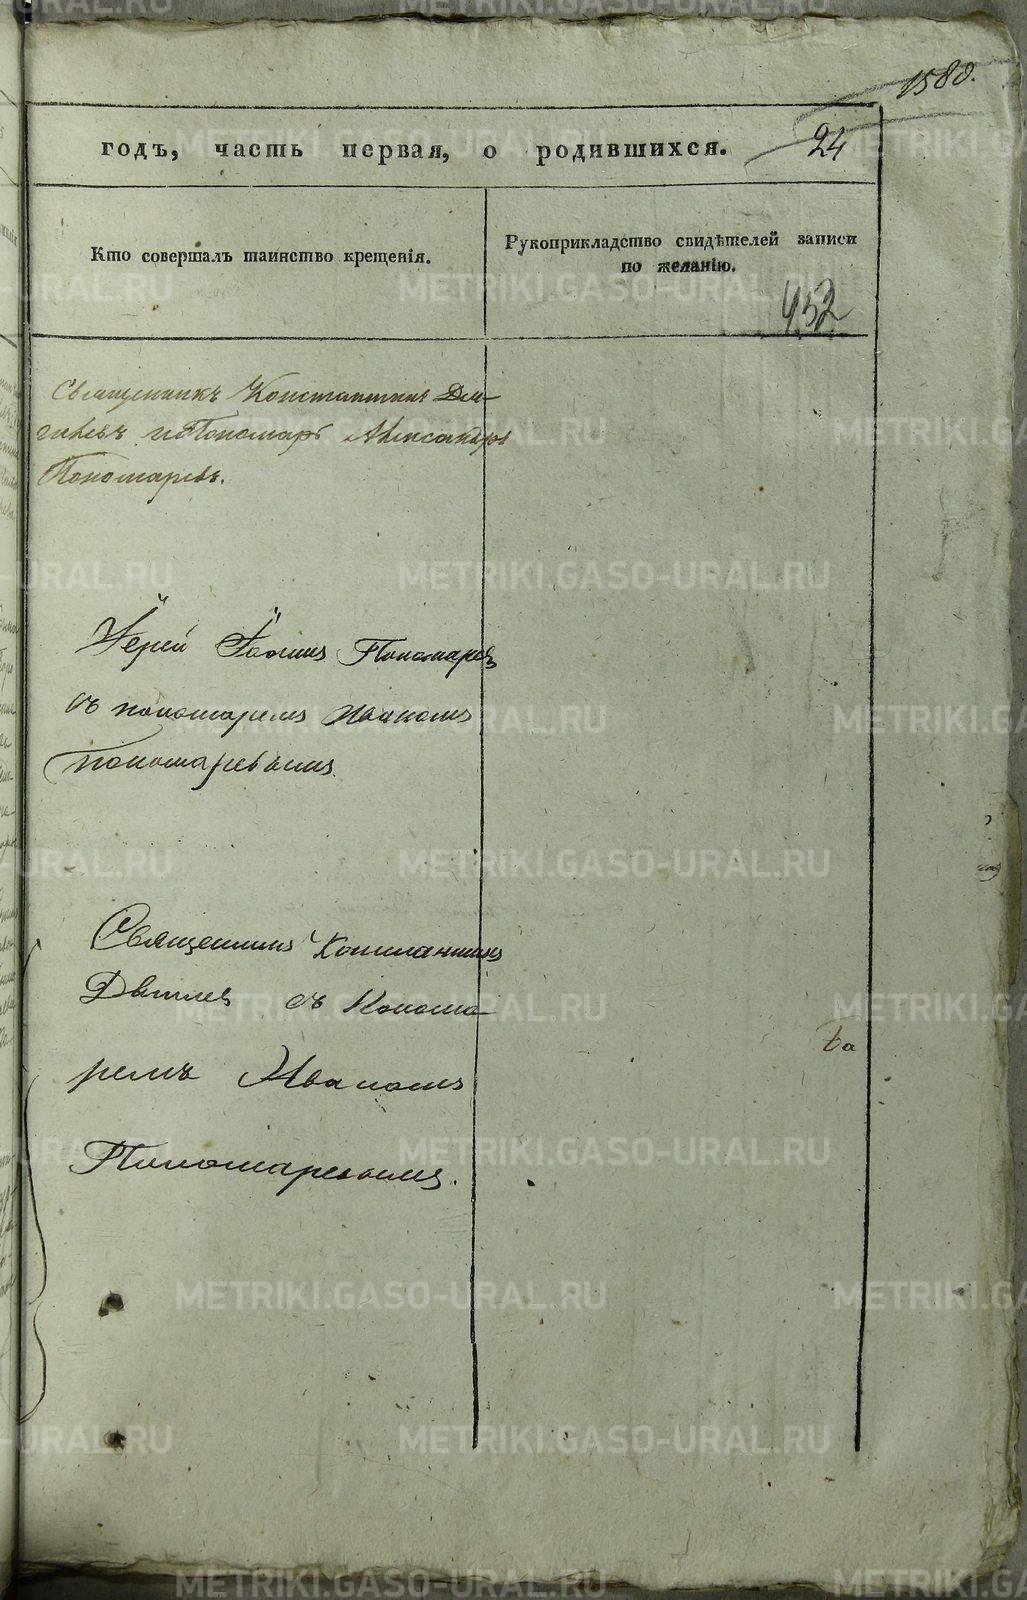 1580.
годъ, часть первая, о родившихся. 24
Кто совершалъ таинство крещенія.
Рукоприкладство свидѣтелей записи
по желанію.
452
Священникъ Константинъ
и Пономарь Александръ
Пономаревъ.
Іерей Іоаннъ Пономаревъ
съ пономаремъ Иваномъ
пономаревымъ.
Священникъ Константинъ
съ Понома-
ремъ Иваномъ
Пономаревымъ.
METRIKI.GASO-URAL.RU